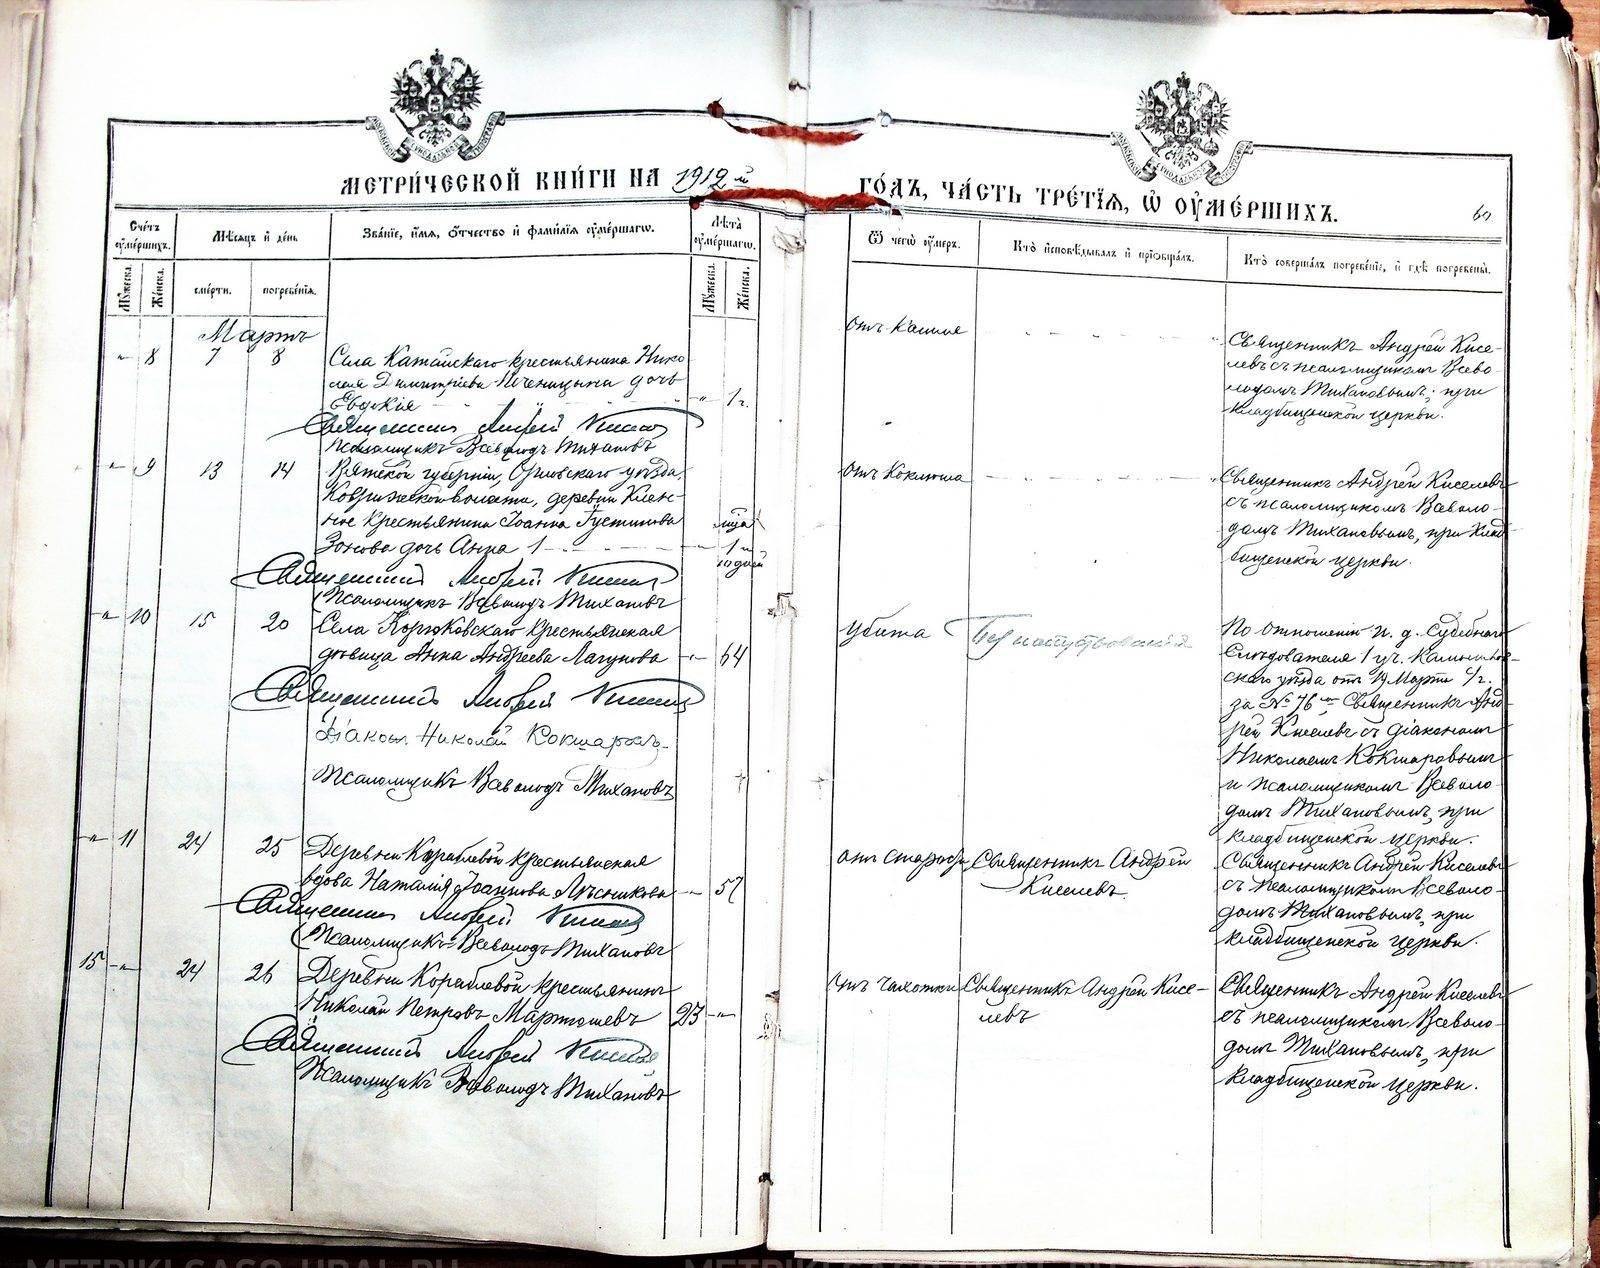 МЕТРИ́ЧЕСКОЙ КНИ́ГИ НА 1912 й
ГО́ДЪ, ЧА́СТЬ ТРЕ́ТЇѦ, Ѡ ОУМЕ́РШИХЪ.
Сче́тъ оуме́ршихъ.
Мѣ́сяцъ и день
Зва́нїе, и́мя, о́тчество и фами́лїя оуме́ршагѡ.
Лѣта̀ оуме́ршагѡ.
Му́жеска.
Же́нска.
сме́рти.
погребе́нїя.
Му́жеска.
Же́нска.
Ѿ чегѡ̀ оу́меръ.
Кто̀ исповѣ́дывалъ и прїобща́лъ.
Кто̀ соверша́лъ погребе́нїе, и гдѣ погребены̀.
Мартъ
" 8 7 8
Села Катайскаго крестьянина Нико
лая Димитріева Печеницына дочь
Евдокія " 1 г.
Священникъ Андрей Киселевъ
Псаломщикъ Всеволодъ Тихановъ
отъ кашля
Священникъ Андрей Кисе-
левъ съ псаломщикомъ Всево-
лодомъ Тихановымъ, при
кладбищенской церкви.
" 9 13 14
Вятской губерніи, Орловскаго уѣзда,
Коврижской волости, деревни
крестьянина Іоанна Густинова
Зонова дочь Анна 1 " мѣс 1 и 10 дней
Священникъ Андрей Киселевъ
Псаломщикъ Всеволодъ Тихановъ
отъ коклюша
Священникъ Андрей Киселевъ
съ псаломщикомъ Всеволо-
домъ Тихановымъ, при клад-
бищенской церкви.
" 10 15 20
Села Корюковскаго крестьянская
вдовица Анна Андреева Лагунова " 64
Священникъ Андрей Киселевъ
Діаконъ Николай Кокшаровъ
Псаломщикъ Всеволодъ Тихановъ
убита
По отношенію и. д. Судебнаго
Слѣдователя 1 уч. Камышлов-
скаго уѣзда отъ 19 Марта с/г.
за № 76 Священникъ Анд-
рей Киселевъ съ діакономъ
Николаемъ Кокшаровымъ
и псаломщикомъ Всеволо-
домъ Тихановымъ, при
кладбищенской церкви.
" 11 24 25
Деревни Кораблевой крестьянская
вдова Наталія Іоаннова Лѣсникова " 57
Священникъ Андрей Киселевъ
Псаломщикъ Всеволодъ Тихановъ
отъ старости
Священникъ Андрей
Киселевъ.
Священникъ Андрей Киселевъ
съ псаломщикомъ Всеволо-
домъ Тихановымъ, при
кладбищенской церкви.
15 " 24 26
Деревни Кораблевой крестьянинъ
Николай Петровъ Мартюшевъ 23 "
Священникъ Андрей Киселевъ
Псаломщикъ Всеволодъ Тихановъ
отъ чахотки
Священникъ Андрей Кисе-
левъ
Священникъ Андрей Киселевъ
съ псаломщикомъ Всеволо-
домъ Тихановымъ, при
кладбищенской церкви.